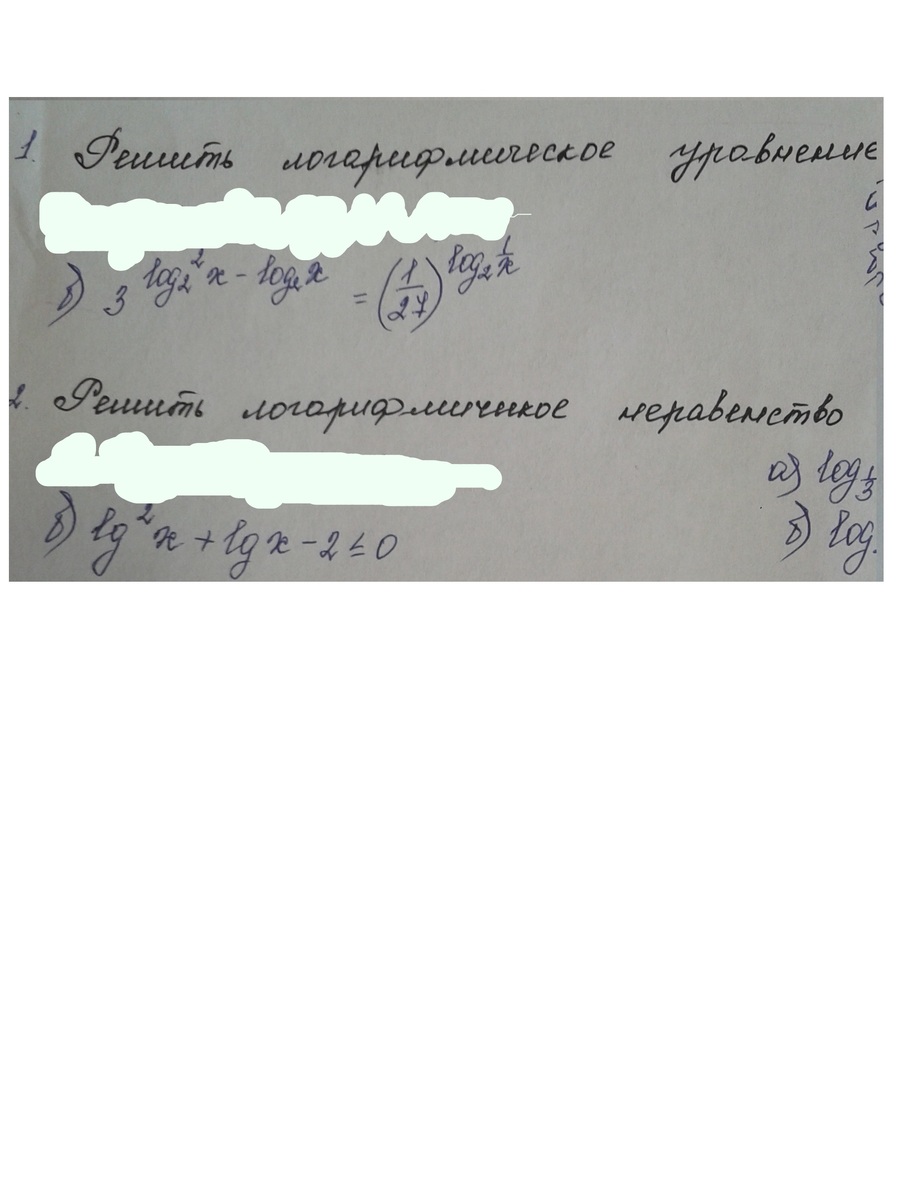 1. Решить логарифмическое уравнение
б) 3^(log₂² x - log₂ x) = (1/27)^(log₂ 1/x)
2. Решить логарифмичикое неравенство
а) log 1/3
б) lg² x + lg x - 2 ≤ 0
б) log.